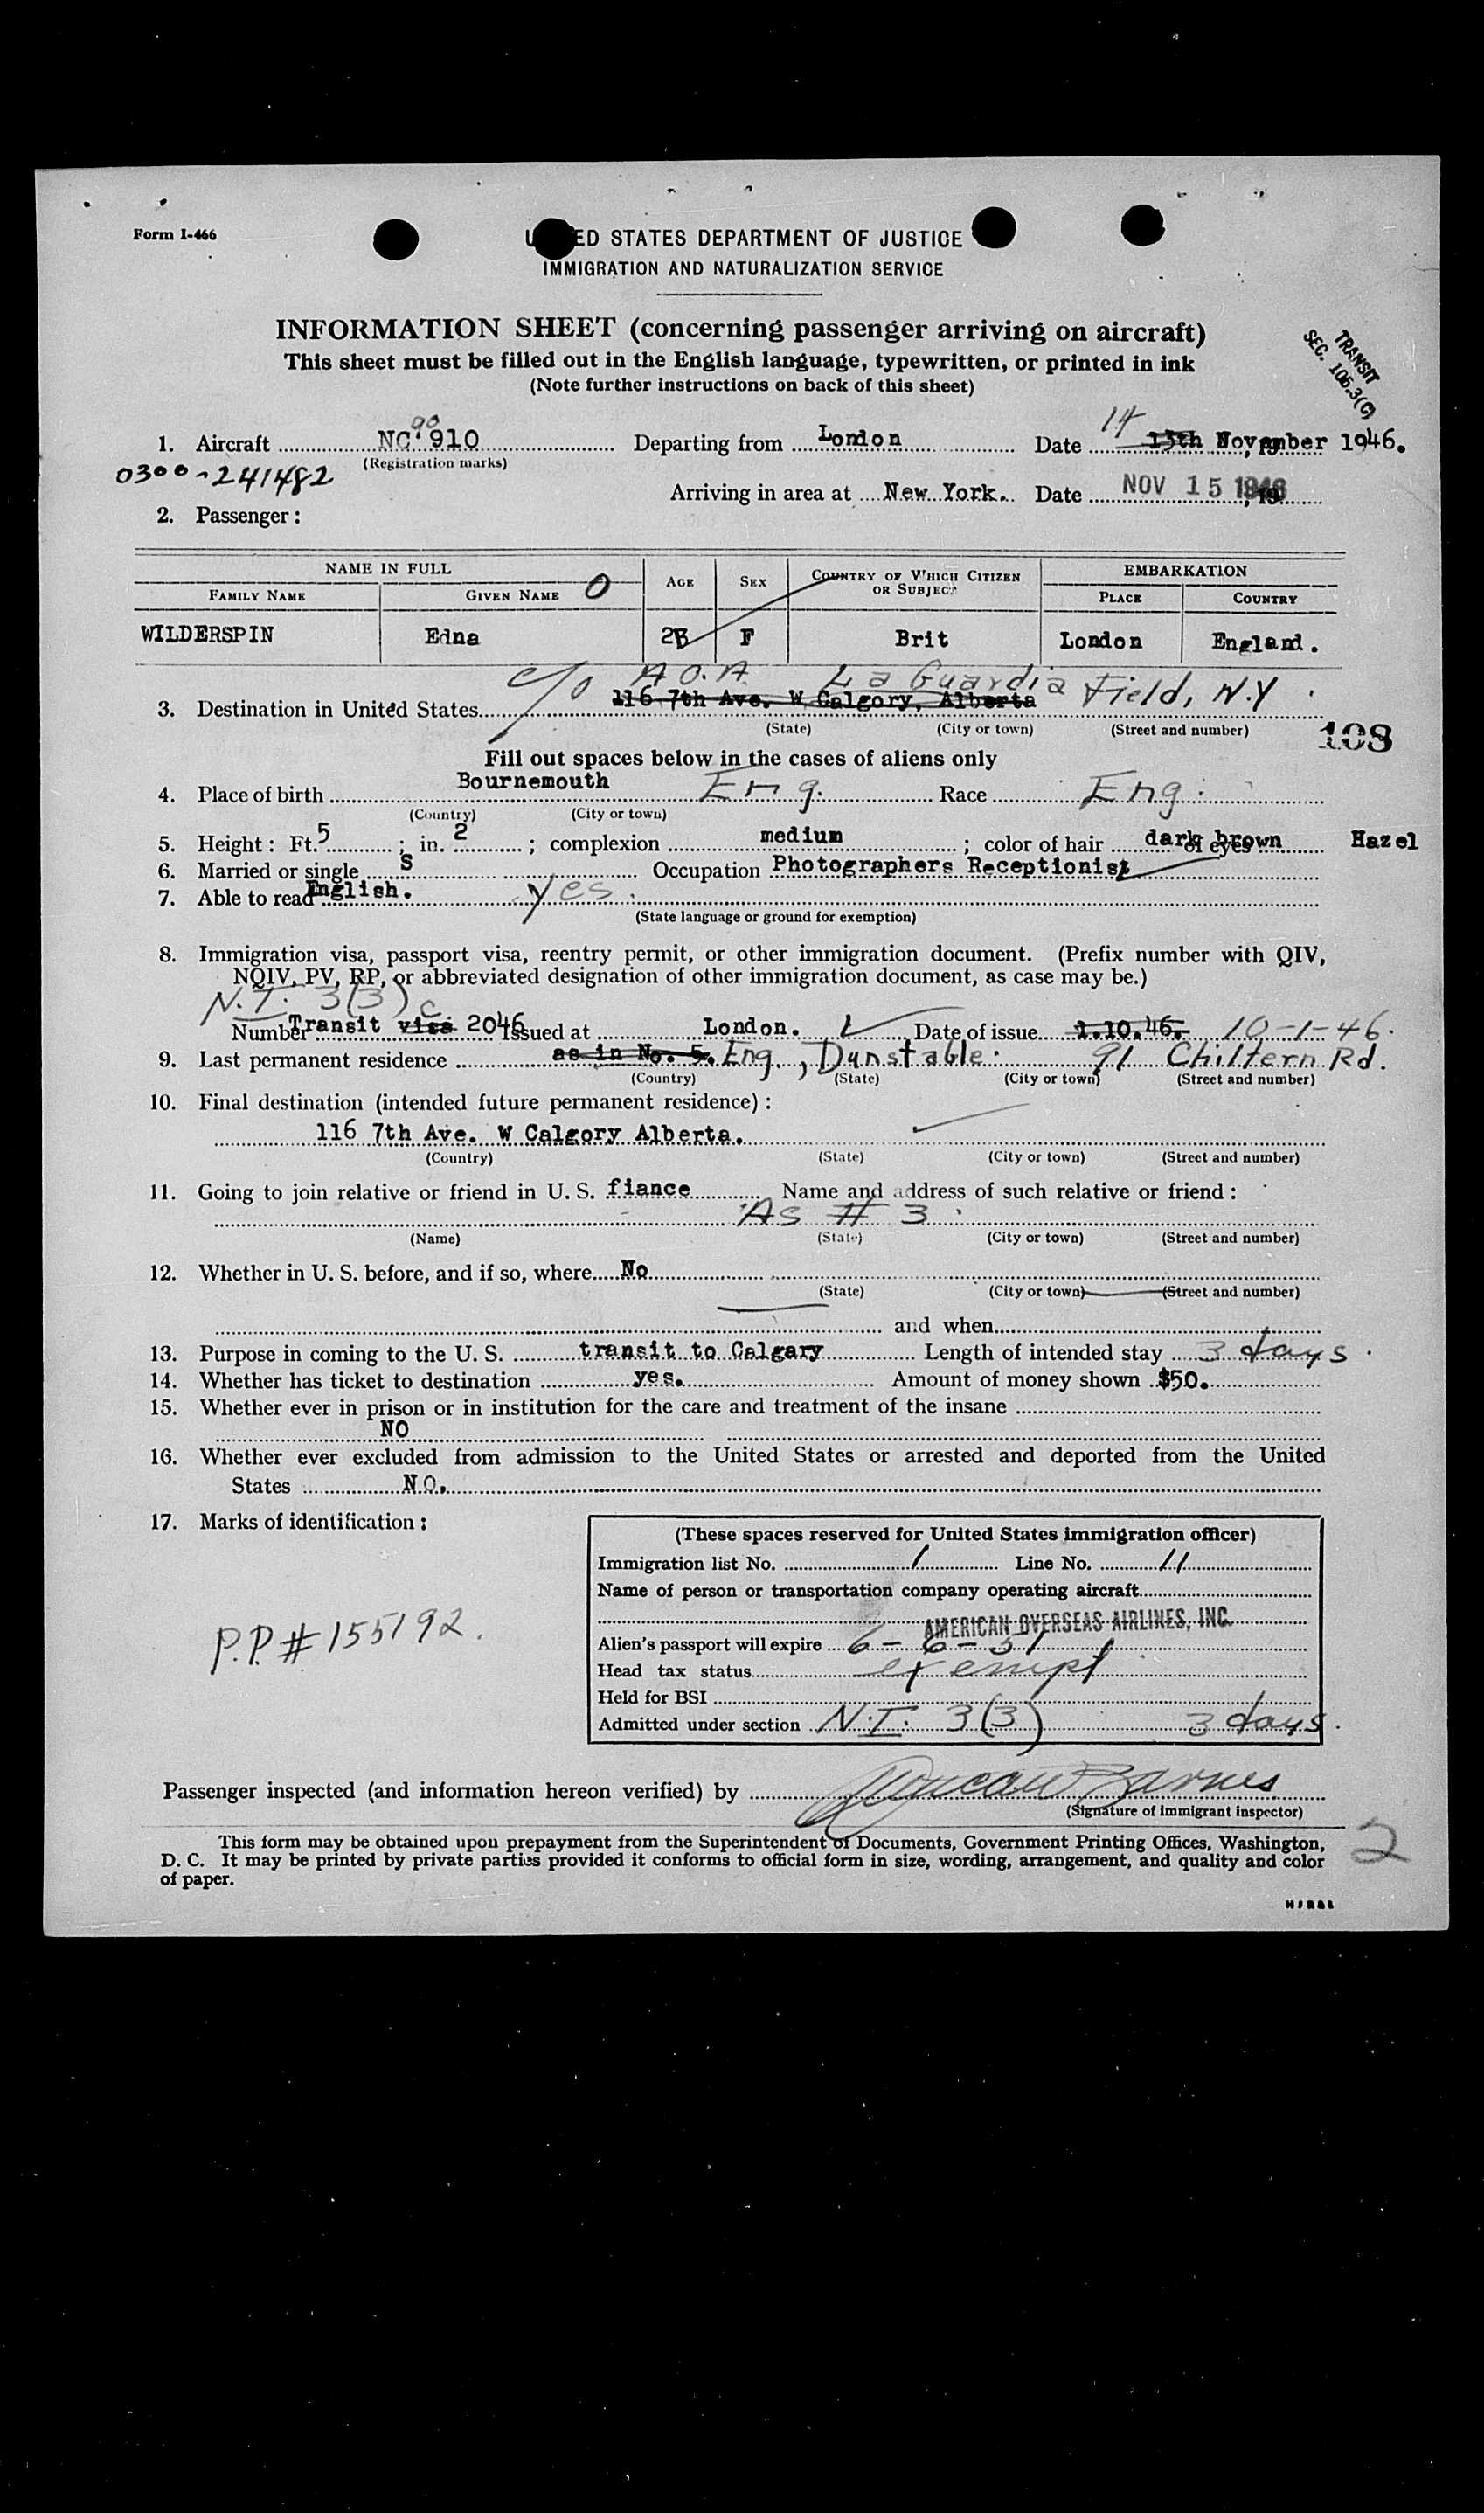 Form I-466
UNITED STATES DEPARTMENT OF JUSTICE
IMMIGRATION AND NATURALIZATION SERVICE
INFORMATION SHEET (concerning passenger arriving on aircraft)
This sheet must be filled out in the English language, typewritten, or printed in ink
(Note further instructions on back of this sheet)
TRANSIT
SEC. 105.3(C)
1. Aircraft NC 90 910 Departing from London Date 14 13th November 1946.
(Registration marks)
0300-241482
Arriving in area at New York. Date NOV 15 1946
2. Passenger:
NAME IN FULL AGE SEX COUNTRY OF WHICH CITIZEN OR SUBJECT EMBARKATION
FAMILY NAME GIVEN NAME O PLACE COUNTRY
WILDERSPIN Edna F Brit London England.
c/o A.O.A La Guardia Field, N.Y.
3. Destination in United States 116 7th Ave. W Calgory, Alberta
(State) (City or town) (Street and number)
108
Fill out spaces below in the cases of aliens only
4. Place of birth Bournemouth Eng. Race Eng.
(Country) (City or town)
5. Height: Ft. 5; in. 2; complexion medium; color of hair dark brown of eyes Hazel
6. Married or single S Occupation Photographers Receptionist
7. Able to read English. yes.
(State language or ground for exemption)
8. Immigration visa, passport visa, reentry permit, or other immigration document. (Prefix number with QIV,
NQIV, PV, RP, or abbreviated designation of other immigration document, as case may be.)
N.I. 3(3) c
Number Transit visa 2046 Issued at London. Date of issue 1.10.46. 10-1-46.
9. Last permanent residence as in No. 5. Eng., Dunstable. 91 Chiltern Rd.
(Country) (State) (City or town) (Street and number)
10. Final destination (intended future permanent residence):
116 7th Ave. W Calgory Alberta.
(Country) (State) (City or town) (Street and number)
11. Going to join relative or friend in U. S. fiance Name and address of such relative or friend:
As # 3.
(Name) (State) (City or town) (Street and number)
12. Whether in U. S. before, and if so, where No
(State) (City or town) (Street and number)
and when
13. Purpose in coming to the U. S. transit to Calgary Length of intended stay 3 days.
14. Whether has ticket to destination yes. Amount of money shown $50.
15. Whether ever in prison or in institution for the care and treatment of the insane
NO
16. Whether ever excluded from admission to the United States or arrested and deported from the United
States NO.
17. Marks of identification:
P.P.#155192.
(These spaces reserved for United States immigration officer)
Immigration list No. 1 Line No. 11
Name of person or transportation company operating aircraft
AMERICAN OVERSEAS AIRLINES, INC.
Alien's passport will expire 6-6-51
Head tax status exempt
Held for BSI
Admitted under section N.I. 3(3) 3 days.
Passenger inspected (and information hereon verified) by Barnes
(Signature of immigrant inspector)
This form may be obtained upon prepayment from the Superintendent of Documents, Government Printing Offices, Washington,
D. C. It may be printed by private parties provided it conforms to official form in size, wording, arrangement, and quality and color
of paper.
2